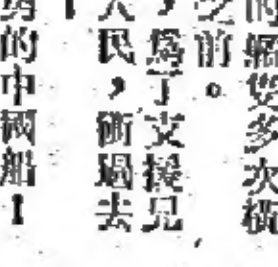 多次
之前。
，爲了支援兄
人民，衝過去
的中國船！